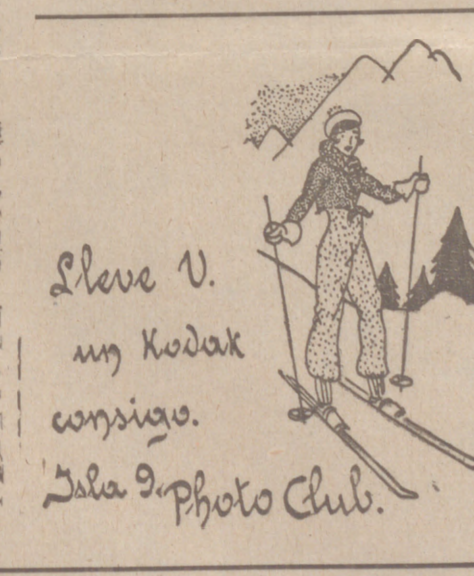 Lleve V.
un Kodak
consigo.
Isla 9. Photo Club.